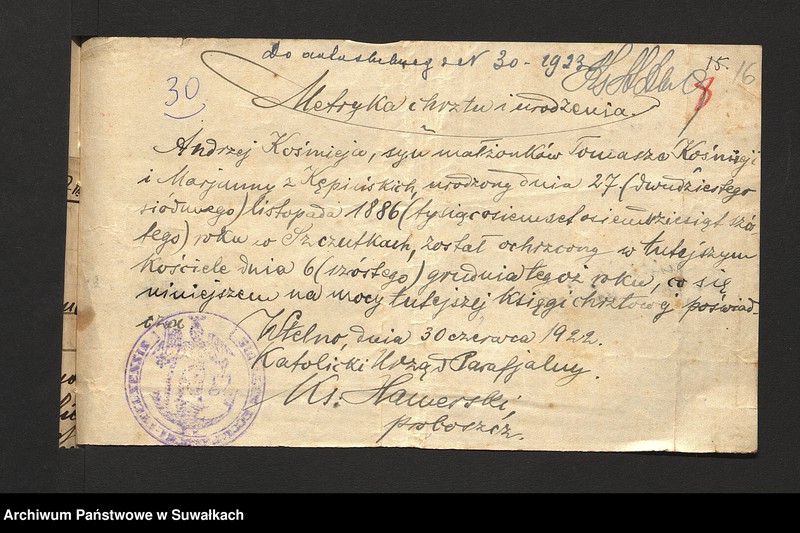 Do aktu ślubneg z N 30 - 1923
15. 16
30
Metryka chrztu i urodzenia.
Andrzej Kośmieja, syn małżonków Tomasza Kośmieji
i Marjanny z Kępińskich, urodzony dnia 27 (dwudziestego
siódmego) listopada 1886 (tysiącosiemset osiemdziesiąt szó-
stego) roku w Szczutkach, został ochrzcony w tutejszym
kościele dnia 6 (szóstego) grudnia tegoż roku, co się
niniejszem na mocy tutejszej księgi chrztowej poświad-
cza.
Wtelno, dnia 30 czerwca 1922.
Katolicki Urząd Parafjalny.
Ks. Hamerski,
proboszcz.
Archiwum Państwowe w Suwałkach